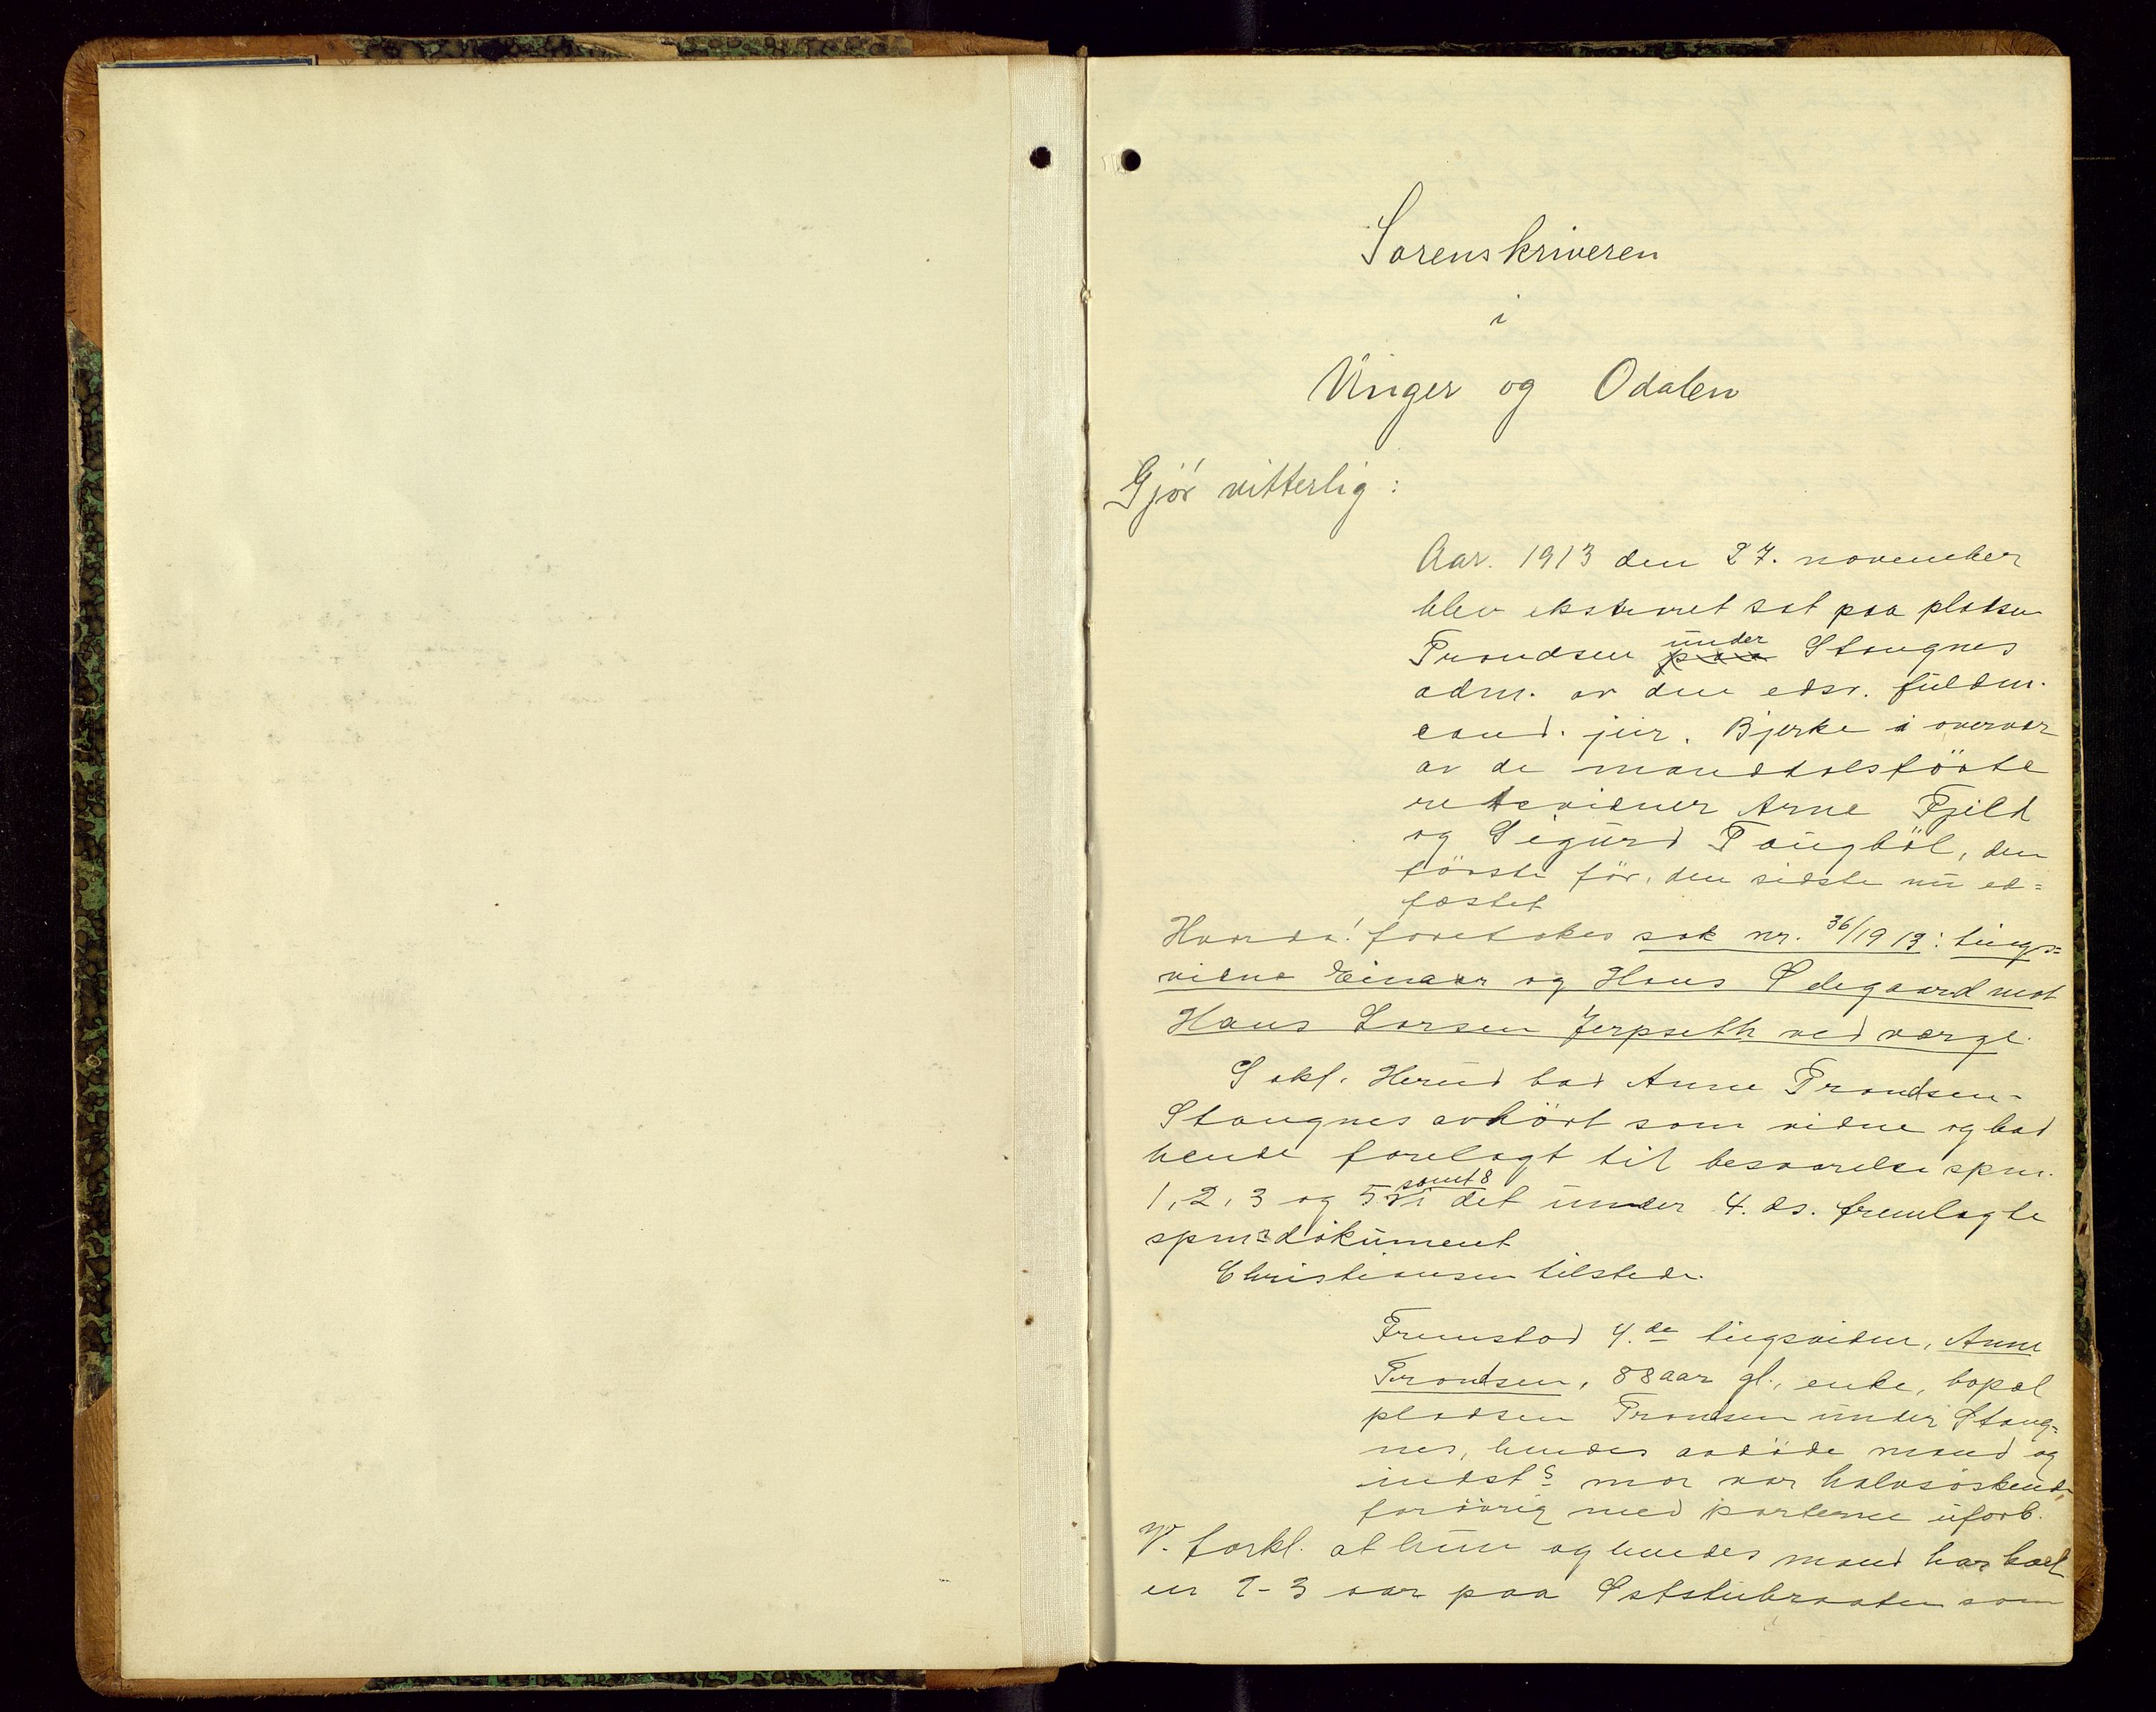 Sorenskriveren
i
Vinger og Odalen
Gjör vitterlig:
Aar. 1913 den 27. november
blev ekstraret sat paa pladsen
Trondsen under ~~paa~~ Stangnes
adm. av den edsv. fuldm.
cand. jur. Bjerke i overvær
av de mandtalsförte
retsvidner Arne Fjeld
og Sigurd Taugböl, den
förste för, den sidste nu ed=
fæstet
Hvorda! foretokes sak nr. 36/1913: tings=
vidne Einar og Hans Ødegaard mot
Hans Larsen Jerpseth ved verge.
Sakf. Herud bad Anne Trondsen-
Stangnes avhört som vidne og bad
hende forelagt til besvarelse spm.
1, 2, 3 og 5 samt 8 i det under 4. ds. fremlagte
spm=dokument
Christiansen tilstede.
Fremstod 4.de tingsvidne, Anne
Trondsen, 88 aar gl., enke, bopæl
pladsen Tronsen under Stang=
nes, hendes avdöde mand og
indst.s mor var halvsöskende,
forövrig med parterne uforb.
V. forkl. at hun og hendes mand har boet
en 2-3 aar paa Øststubraaten som